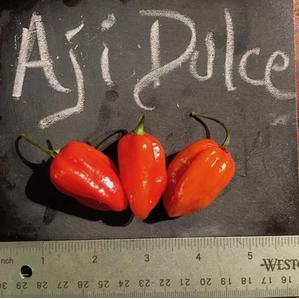 Aji Dulce
inch 1 2 3 4 5 WESTC
30 29 28 27 26 25 24 23 22 21 20 19 18 17 16